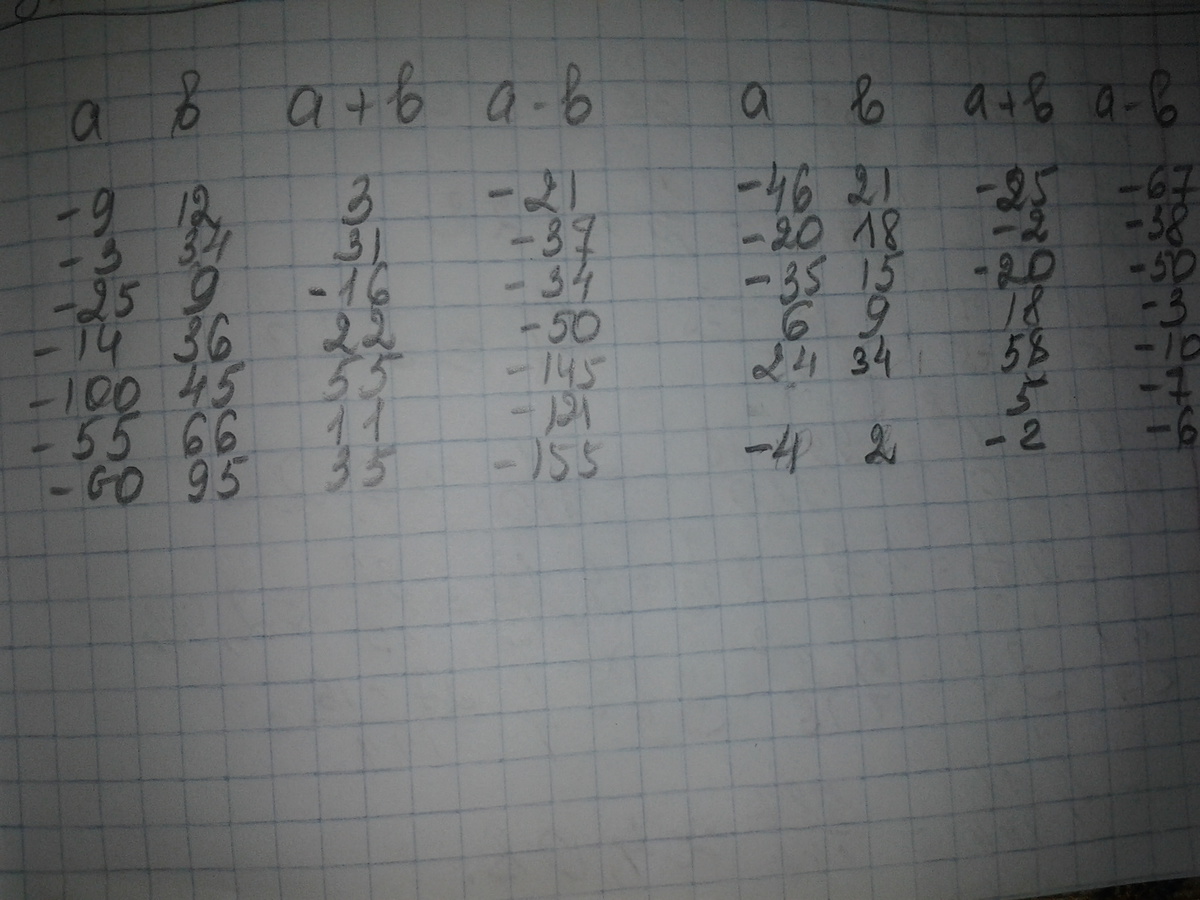 a b a+b a-b a b a+b a-b
-9 12 3 -21 -46 21 -25 -67
-3 34 31 -37 -20 18 -2 -38
-25 9 -16 -34 -35 15 -20 -50
-14 36 22 -50 6 9 18 -3
-100 45 55 -145 24 34 58 -10
-55 66 11 -121 5 -7
-60 95 35 -155 -4 2 -2 -6